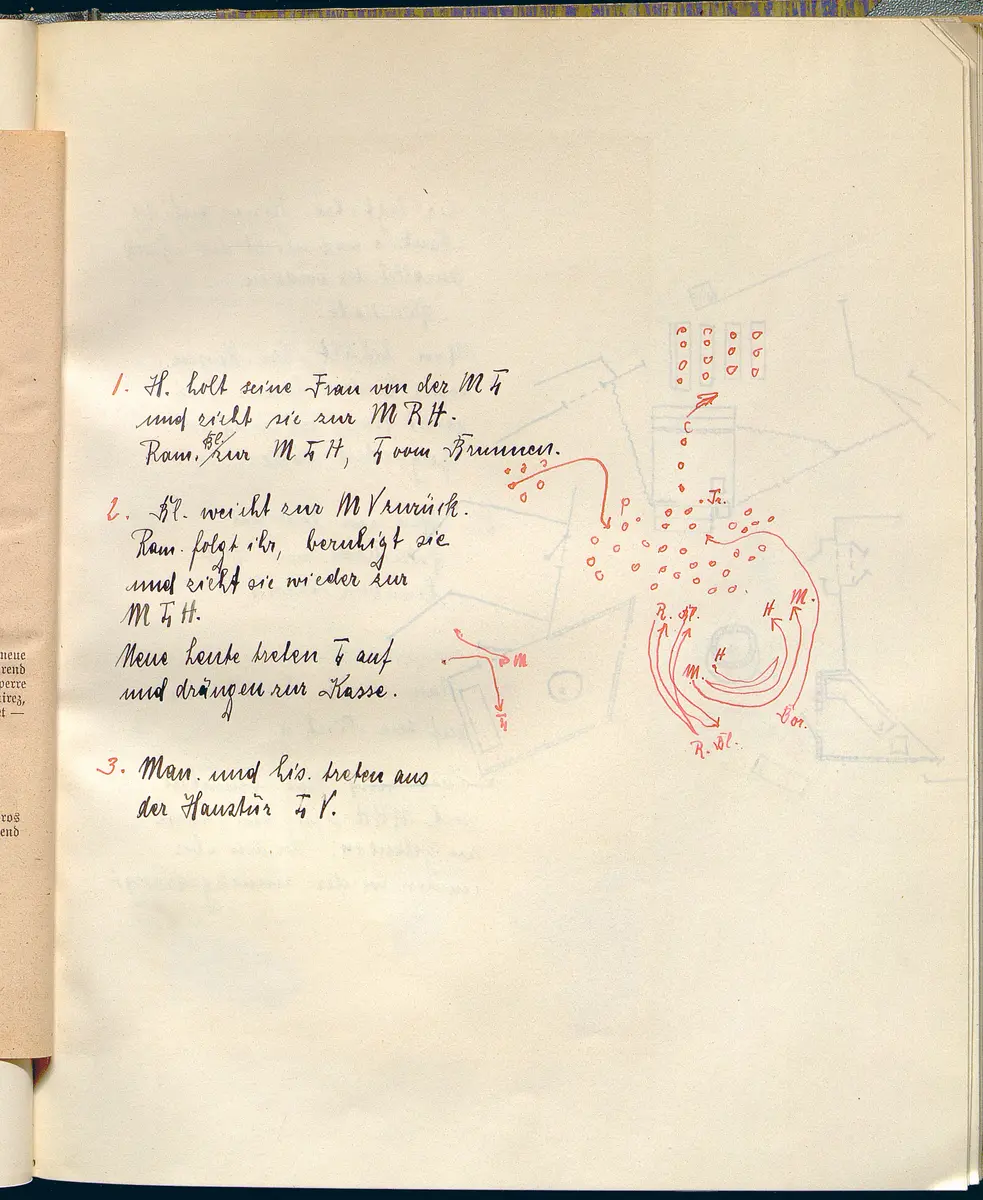 1. H. holt seine Frau von der M L
und zieht sie zur M R H.
Ram. Bl/ zur M L H, L vom Brunnen.
2. Bl. weicht zur M V zurück.
Ram. folgt ihr, beruhigt sie
und zieht sie wieder zur
M L H.
Neue Leute treten L auf
und drängen zur Kasse.
3. Man. und Lis. treten aus
der Haustür L V.
C
P
Tr.
R. Bl.
H M.
H
M.
M
L
R. Bl.
Cor.
neue
rend
perre
irez,
et —
ros
end